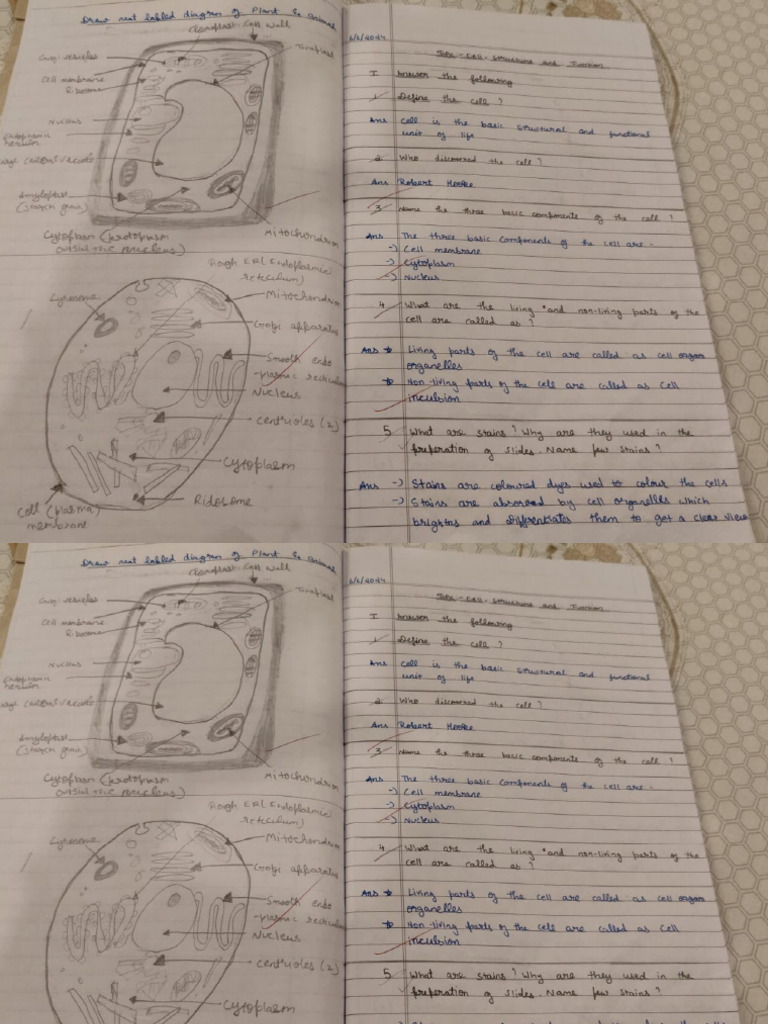 Draw neat labled diagram of Plant & animal
Cell wall
Golgi vesicles
Cell membrane
Ribosome
Nucleus
Amyloplast
(starch grain)
Mitochondrion
Cytoplasm (protoplasm
outside the nucleus)
Rough ER (Endoplasmic
reticulum)
Mitochondrion
Lysosome
Golgi apparatus
Smooth endo
-plasmic reticulum
Nucleus
centrioles (2)
Cytoplasm
Ribosome
Cell (plasma)
membrane
Cell - Structure and Function
I Answer the following
1. Define the cell ?
Ans Cell is the basic structural and functional
unit of life
2. Who discovered the cell ?
Ans Robert Hooke
3. Name the three basic components of the cell !
Ans The three basic components of the cell are -
-) Cell membrane
-) Cytoplasm
-) Nucleus
4 What are the living and non-living parts of the
cell are called as ?
Ans * Living parts of the cell are called as cell
organelles
* Non-living parts of the cell are called as Cell
5 What are stains ? Why are they used in the
preparation of slides. Name few stains ?
Ans -) Stains are coloured dyes used to colour the cells
-) Stains are by cell organelles which
and them to get a clear view
Draw neat labled diagram of Plant & animal
Cell wall
Golgi vesicles
Cell membrane
Ribosome
Nucleus
Amyloplast
(starch grain)
Mitochondrion
Cytoplasm (protoplasm
outside the nucleus)
Rough ER (Endoplasmic
reticulum)
Mitochondrion
Lysosome
Golgi apparatus
Smooth endo
-plasmic reticulum
Nucleus
centrioles (2)
Cytoplasm
Cell - Structure and Function
I Answer the following
1. Define the cell ?
Ans Cell is the basic structural and functional
unit of life
2. Who discovered the cell ?
Ans Robert Hooke
3. Name the three basic components of the cell !
Ans The three basic components of the cell are -
-) Cell membrane
-) Cytoplasm
-) Nucleus
4 What are the living and non-living parts of the
cell are called as ?
Ans * Living parts of the cell are called as cell
organelles
* Non-living parts of the cell are called as Cell
5 What are stains ? Why are they used in the
preparation of slides. Name few stains ?